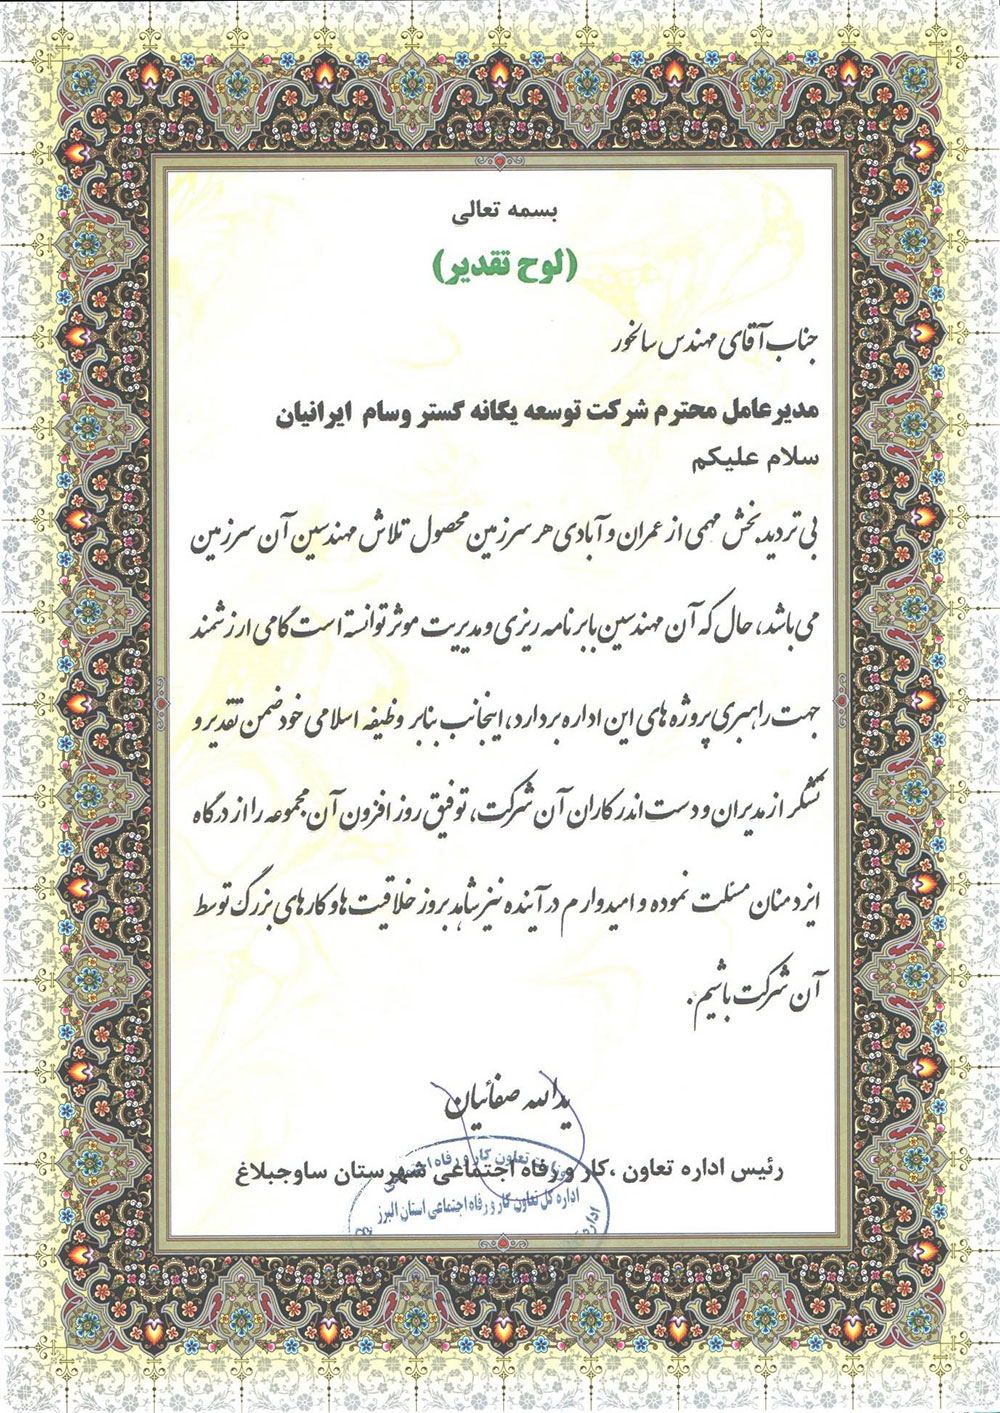 بسمه تعالی
(لوح تقدیر)
جناب آقای مهندس سالخور
مدیرعامل محترم شرکت توسعه یگانه گستر وسام ایرانیان
سلام علیکم
بی تردید بخش مهمی از عمران و آبادی هر سرزمین محصول تلاش مهندسین آن سرزمین
می باشد، حال که آن مهندسین با برنامه ریزی و مدیریت موثر توانسته است گامی ارزشمند
جهت راهبری پروژه های این اداره بردارد، اینجانب بنابر وظیفه اسلامی خود ضمن تقدیر و
تشکر از مدیران و دست اندرکاران آن شرکت، توفیق روز افزون آن مجموعه را از درگاه
ایزد منان مسئلت نموده و امیدوارم در آینده نیز شاهد بروز خلاقیت ها و کارهای بزرگ توسط
آن شرکت باشیم.
یدالله صفائیان
رئیس اداره تعاون ،کار و رفاه اجتماعی شهرستان ساوجبلاغ
تعاون کار و رفاه
اداره کل تعاون کار و رفاه اجتماعی استان البرز